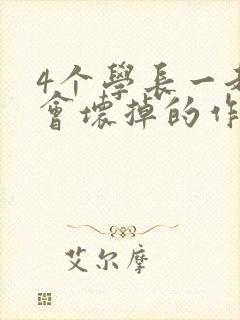 4个學長一起
會壞掉的作
艾尔摩